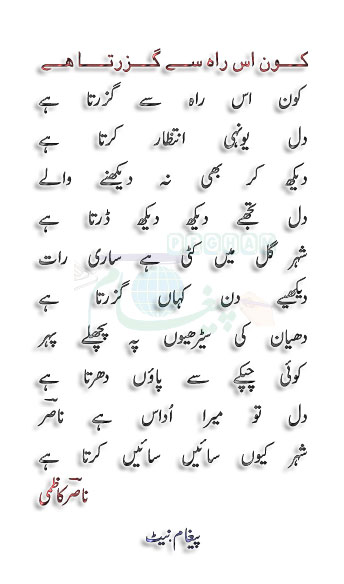 کون اس راہ سے گزرتا ہے
کون اس راہ سے گزرتا ہے
دل یونہی انتظار کرتا ہے
دیکھ کر بھی نہ دیکھنے والے
دل تجھے دیکھ دیکھ ڈرتا ہے
شہر گل میں کٹی ہے ساری رات
دیکھیے دن کہاں گزرتا ہے
دھیان کی سیڑھیوں پہ پچھلے پہر
کوئی چپکے سے پاؤں دھرتا ہے
دل تو میرا اُداس ہے ناصرؔ
شہر کیوں سائیں سائیں کرتا ہے
ناصرؔ کاظمی
پیغام.نیٹ
PEGHAM
پیغام